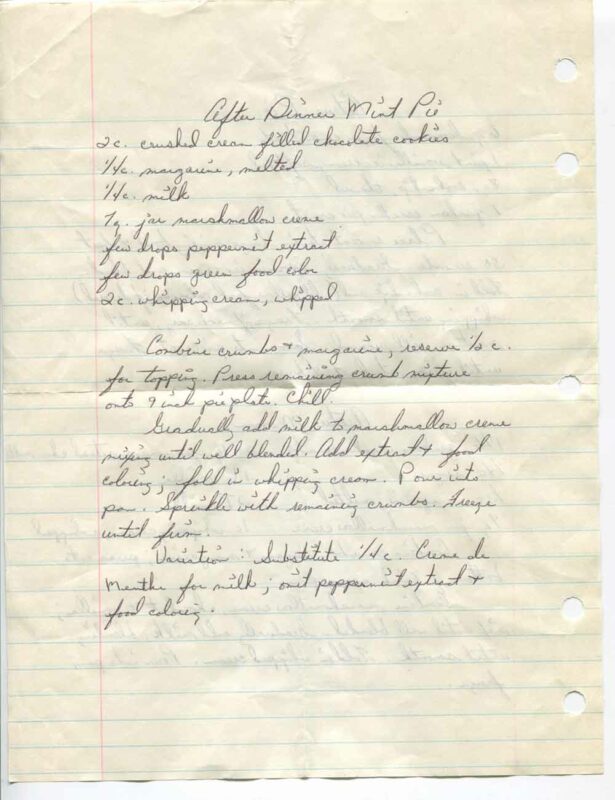 After Dinner Mint Pie
2c. crushed cream filled chocolate cookies
1/4c. margarine, melted
1/4c. milk
7g. jar marshmallow creme
few drops peppermint extract
few drops green food color
2c. whipping cream, whipped
Combine crumbs + margarine, reserve 1/2 c.
for topping. Press remaining crumb mixture
onto 9 inch pie plate. Chill.
Gradually add milk to marshmallow creme
mixing until well blended. Add extract + food
coloring; fold in whipping cream. Pour into
pan. Sprinkle with remaining crumbs. Freeze
until firm.
Variation: Substitute 1/4 c. Creme de
Menthe for milk; omit peppermint extract +
food coloring.